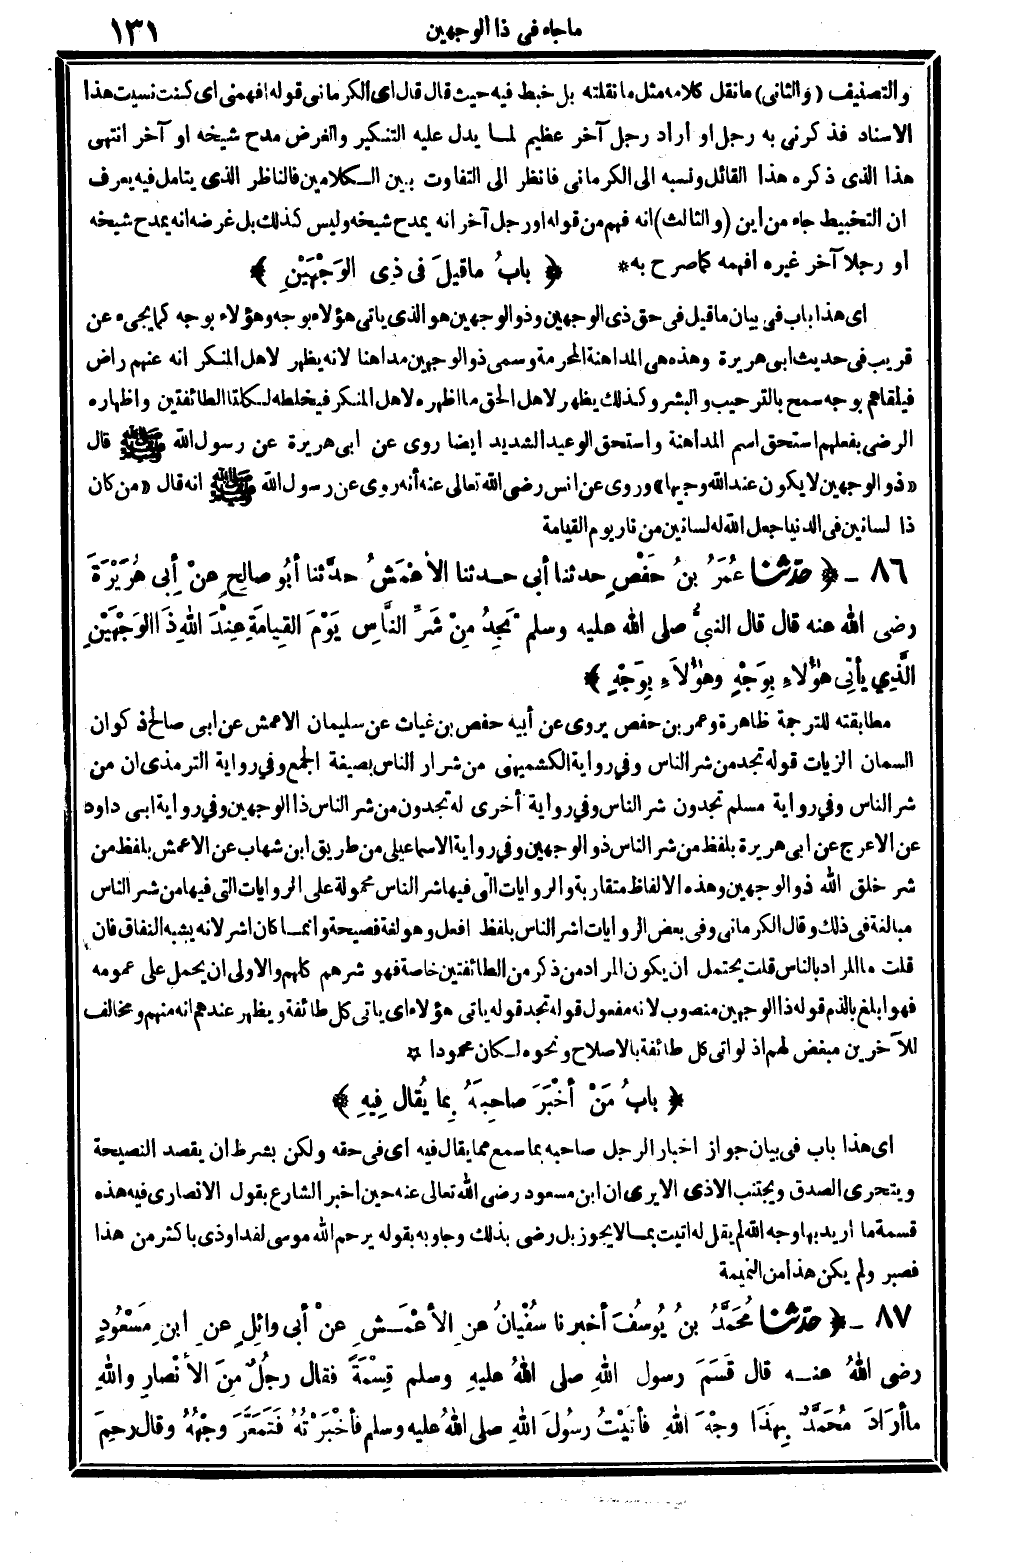 ماجاء فى ذا الوجهين ١٣١
والتصنيف (والثانى) مانقل كلامه مثل مانقلته بل خبط فيه حيث قال قال اى الكرمانى قوله افهمنى اى كنت نسيت هذا
الاسناد فذكرنى به رجل او اراد رجل آخر عظيم لما يدل عليه التنكير والغرض مدح شيخه او آخر انتهى
هذا الذى ذكره هذا القائل ونسبه الى الكرمانى فانظر الى التفاوت بين الكلامين فالناظر الذى يتامل فيه يعرف
ان التخبيط جاء من اين (والثالث) انه فهم من قوله اورجل آخر انه يمدح شيخه وليس كذلك بل غرضه انه يمدح شيخه
او رجلا آخر غيره افهمه كما صرح به*
﴿ بابُ ماقيلَ فى ذِى الوَجْهَيْنِ ﴾
اى هذا باب فى بيان ماقيل فى حق ذى الوجهين وذو الوجهين هو الذى ياتى هؤلاء بوجه وهؤلاء بوجه كما يجىء عن
قريب فى حديث ابى هريرة وهذه هى المداهنة المحرمة وسمى ذو الوجهين مداهنا لانه يظهر لاهل المنكر انه عنهم راض
فيلقاهم بوجه سمح بالترحيب والبشر وكذلك يظهر لاهل الحق ما اظهره لاهل المنكر فيخلطه لكلتا الطائفتين واظهاره
الرضى بفعلهم استحق اسم المداهنة واستحق الوعيد الشديد ايضا روى عن ابى هريرة عن رسول الله ﷺ قال
«ذو الوجهين لا يكون عند الله وجيها» وروى عن انس رضى الله تعالى عنه أنه روى عن رسول الله ﷺ انه قال «من كان
ذا لسانين فى الدنيا جعل الله له لسانين من نار يوم القيامة
٨٦ - ﴿ حدّثنا عُمَرُ بنُ حَفْصٍ حدثنا أبى حدثنا الأعْمَشُ حدّثنا أبُو صالِحٍ عنْ أبِى هُرَيْرَةَ
رضى الله عنه قال قال النبىُّ صلى الله عليه وسلم تَجِدُ مِنْ شَرِّ النَّاسِ يَوْمَ القِيامَةِ عِنْدَ اللهِ ذَا الوَجْهَيْنِ
الَّذِى يأتى هٰؤُلاءِ بِوَجْهٍ وهٰؤُلاَءِ بِوَجْهٍ ﴾
مطابقته للترجمة ظاهرة وعمر بن حفص يروى عن أبيه حفص بن غياث عن سليمان الاعمش عن ابى صالح ذكوان
السمان الزيات قوله تجد من شر الناس وفى رواية الكشميهنى من شرار الناس بصيغة الجمع وفى رواية الترمذى ان من
شر الناس وفى رواية مسلم تجدون شر الناس وفى رواية أخرى له تجدون من شر الناس ذا الوجهين وفى رواية ابى داود
عن الاعرج عن ابى هريرة بلفظ من شر الناس ذو الوجهين وفى رواية الاسماعيلى من طريق ابن شهاب عن الاعمش بلفظ من
شر خلق الله ذو الوجهين وهذه الالفاظ متقاربة والروايات التى فيها شر الناس محمولة على الروايات التى فيها من شر الناس
مبالغة فى ذلك وقال الكرمانى وفى بعض الروايات اشر الناس بلفظ افعل وهو لغة فصيحة وانما كان اشر لانه يشبه النفاق فان
قلت ما المراد بالناس قلت يحتمل ان يكون المراد من ذكر من الطائفتين خاصة فهو شرهم كلهم والاولى ان يحمل على عمومه
فهو ابلغ بالذم قوله ذا الوجهين منصوب لانه مفعول قوله تجد قوله ياتى هؤلاء اى ياتى كل طائفة ويظهر عندهم انه منهم ومخالف
للآخرين مبغض لهم اذ لو اتى كل طائفة بالاصلاح ونحوه لكان محمودا *
﴿ بابُ مَنْ أخْبَرَ صاحِبَهُ بِما يُقال فِيهِ ﴾
اى هذا باب فى بيان جواز اخبار الرجل صاحبه بما سمع مما يقال فيه اى فى حقه ولكن بشرط ان يقصد النصيحة
ويتحرى الصدق ويجتنب الاذى الا يرى ان ابن مسعود رضى الله تعالى عنه حين اخبر الشارع بقول الانصارى فيه هذه
قسمة ما اريد بها وجه الله لم يقل له اتيت بما لا يجوز بل رضى بذلك وجاوبه بقوله يرحم الله موسى لقد اوذى باكثر من هذا
فصبر ولم يكن هذا من النميمة
٨٧ - ﴿ حدّثنا مُحَمَّدُ بنُ يُوسُفَ أخبرنا سُفْيانُ عنِ الأعْمَشِ عنْ أبى وائِلٍ عنِ ابنِ مَسْعُودٍ
رضى اللهُ عنه قال قَسَمَ رسول اللهِ صلى اللهُ عليهِ وسلم قِسْمَةً فقال رجُلٌ مِنَ الأنْصارِ واللهِ
ماأرَادَ مُحَمَّدٌ بِهَذَا وجْهَ اللهِ فأتَيْتُ رسُولَ اللهِ صلى اللهُ عليه وسلم فأخْبَرْتُهُ فَتَمَعَّرَ وجْهُهُ وقال رحِمَ